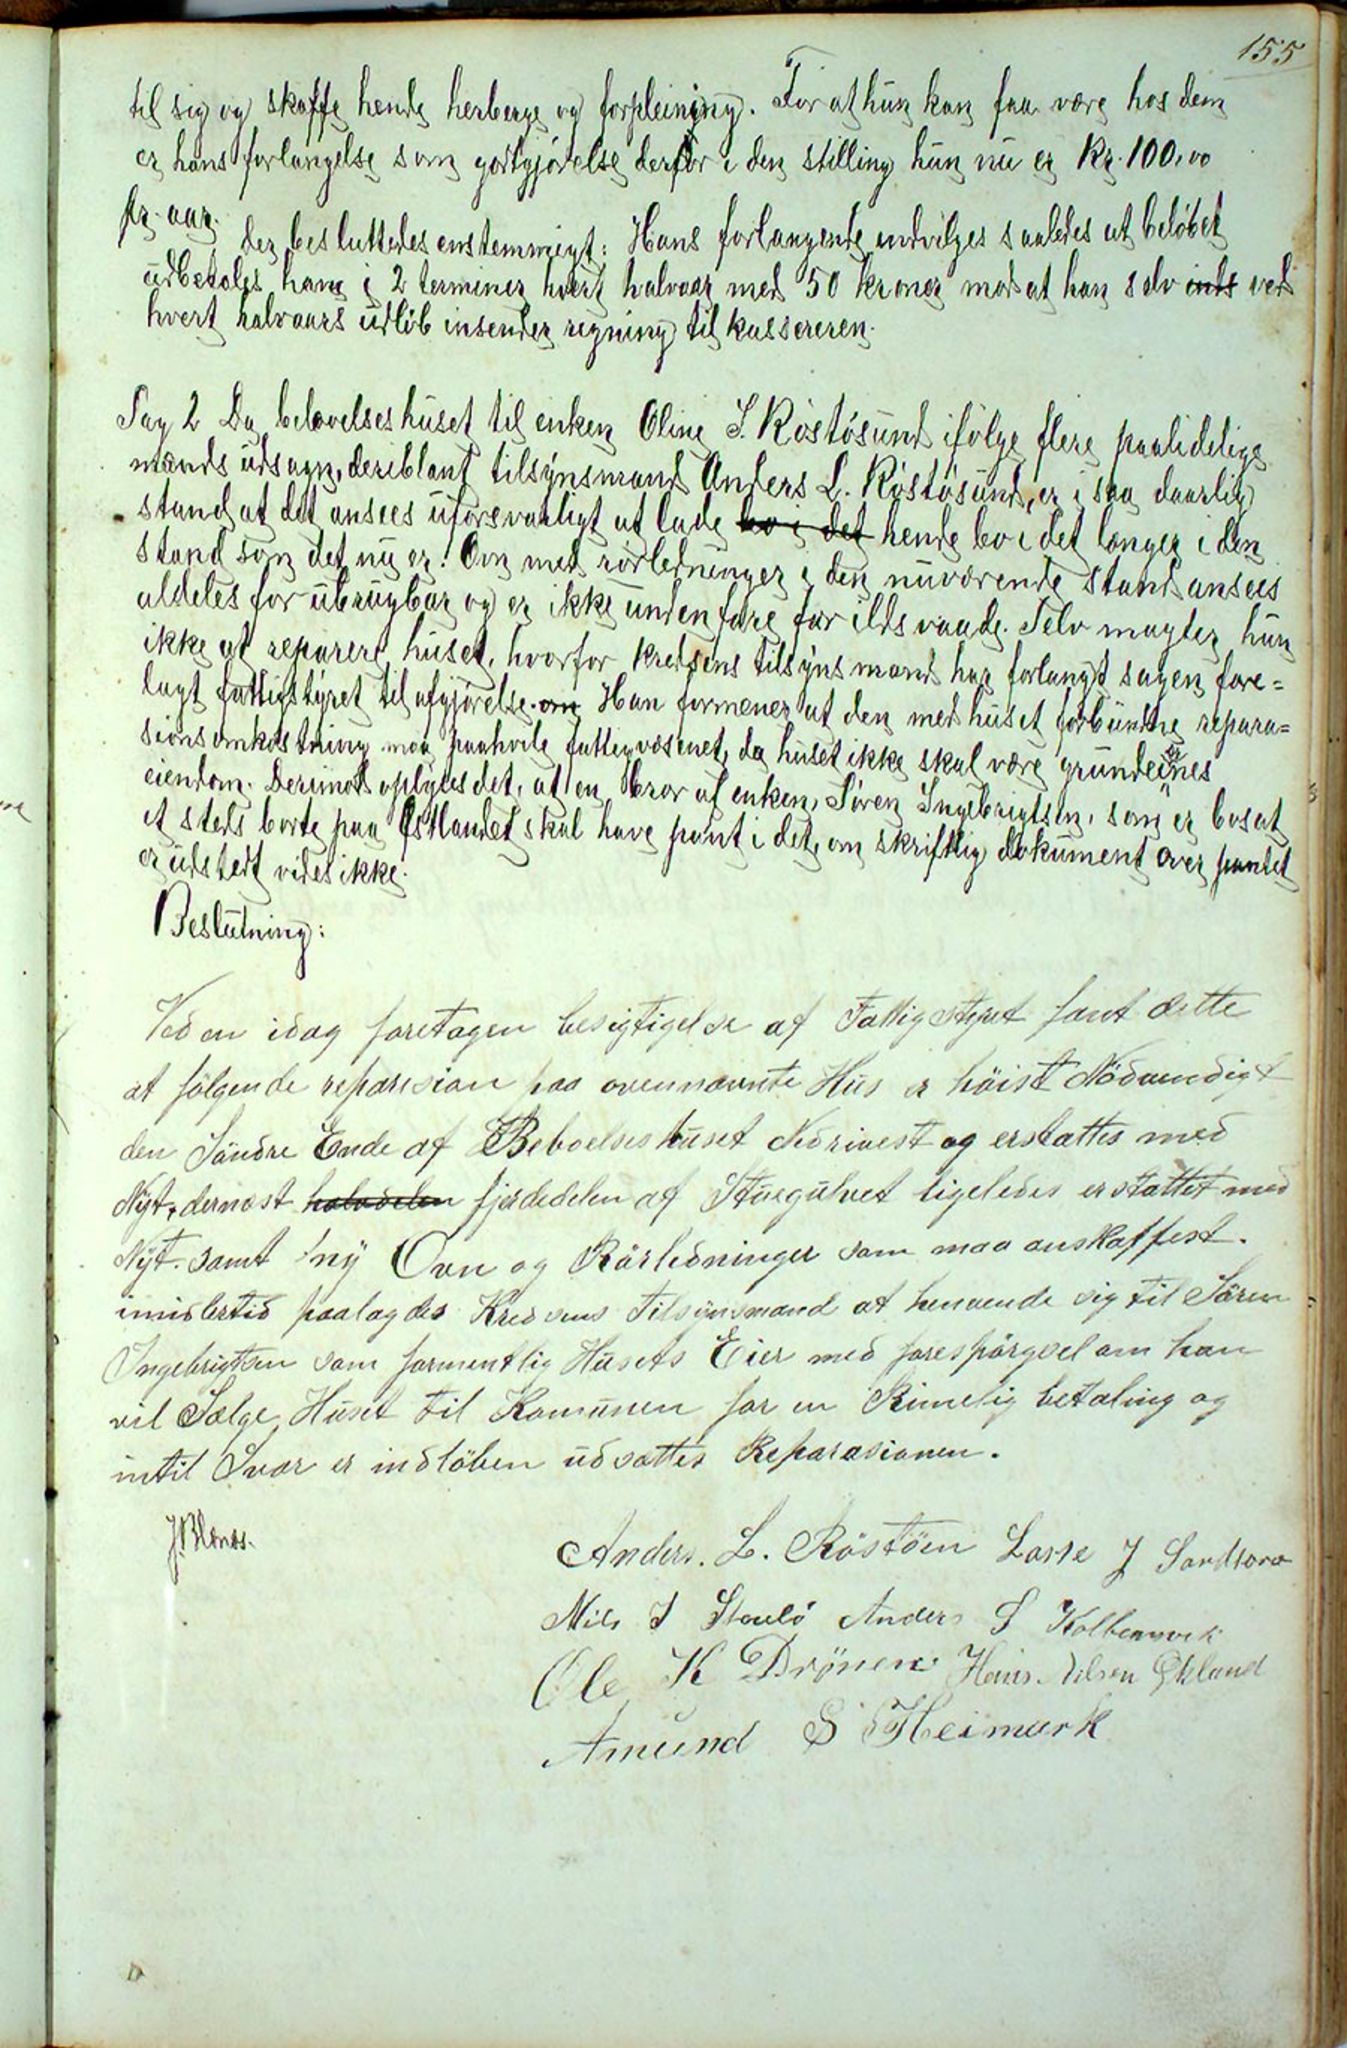 155
til sig og skaffe hende herberge og forpleining. For at hun kan faa være hos dem
er hans forlangelse som godtgjørelse derfor i den stilling hun nu er Kr. 100,00
pr. aar.
Der besluttedes enstemmigt: Hans forlangende indvilges saaledes at beløbet
udbetales ham i 2 terminer hvert halvaar med 50 kroner mod at han selv inds ved
hvert halvaars udløb insender regning til kassereren.
Sag 2 Da beboelseshuset til enken Oline S. Røstøsund ifølge flere paalidelige
mænds udsagn, deriblant tilsynsmand Anders L. Røstøsund, er i saa daarlig
stand at det ansees uforsvarligt at lade bo i det hende bo i det længer i den
stand som det nu er. Ovn med rørledninger i den nuværende stand ansees
aldeles for ubrugbar og er ikke unden fare for ildsvaade. Selv magter hun
ikke at reparere huset, hvorfor kredsens tilsynsmand har forlangt sagen fore=
lagt fattigstyret til afgjørelse. om Han formener at den med huset forbundne repara=
sionsomkostning maa paahvile fattigvæsenet, da huset ikke skal være grundeiernes
eiendom. Derimod oplyses det, at en bror af enken, Søren Ingebrigtsen, som er bosat
et steds borte paa Østlandet skal have pant i det, om skriftlig dokument over pantet
er udstedt vides ikke.
Beslutning:
Ved en idag foretagen besigtigelse af Fattigstyret fant dette
at følgende reparasion paa ovennævnte Hus er høist Nødvendigt
den Søndre Ende af Beboelseshuset Nedrivest og erstattes med
Nyt, dernæst halvdelen fjerdedelen af Stuegulvet ligeledes erstattet med
Nyt. samt 1 ny Ovn og Rørledninger som maa anskaffest.
imidlertid paalagdes Kredsens Tilsynsmand at henvende sig til Søren
Ingebrigtsen som formentlig Husets Eier med forespørgsel om han
vil Sælge Huset til Komunen for en Rimelig betaling og
intil Svar er indløben udsættes Reparasionen.
J. Blænes.
Anders. L. Røstøen Lasse J Sandtorv
Nils J Stoulø Anders S Kolbeinsvik
Ole K Drønen Hans Nilsen Økland
Amund S Heimark